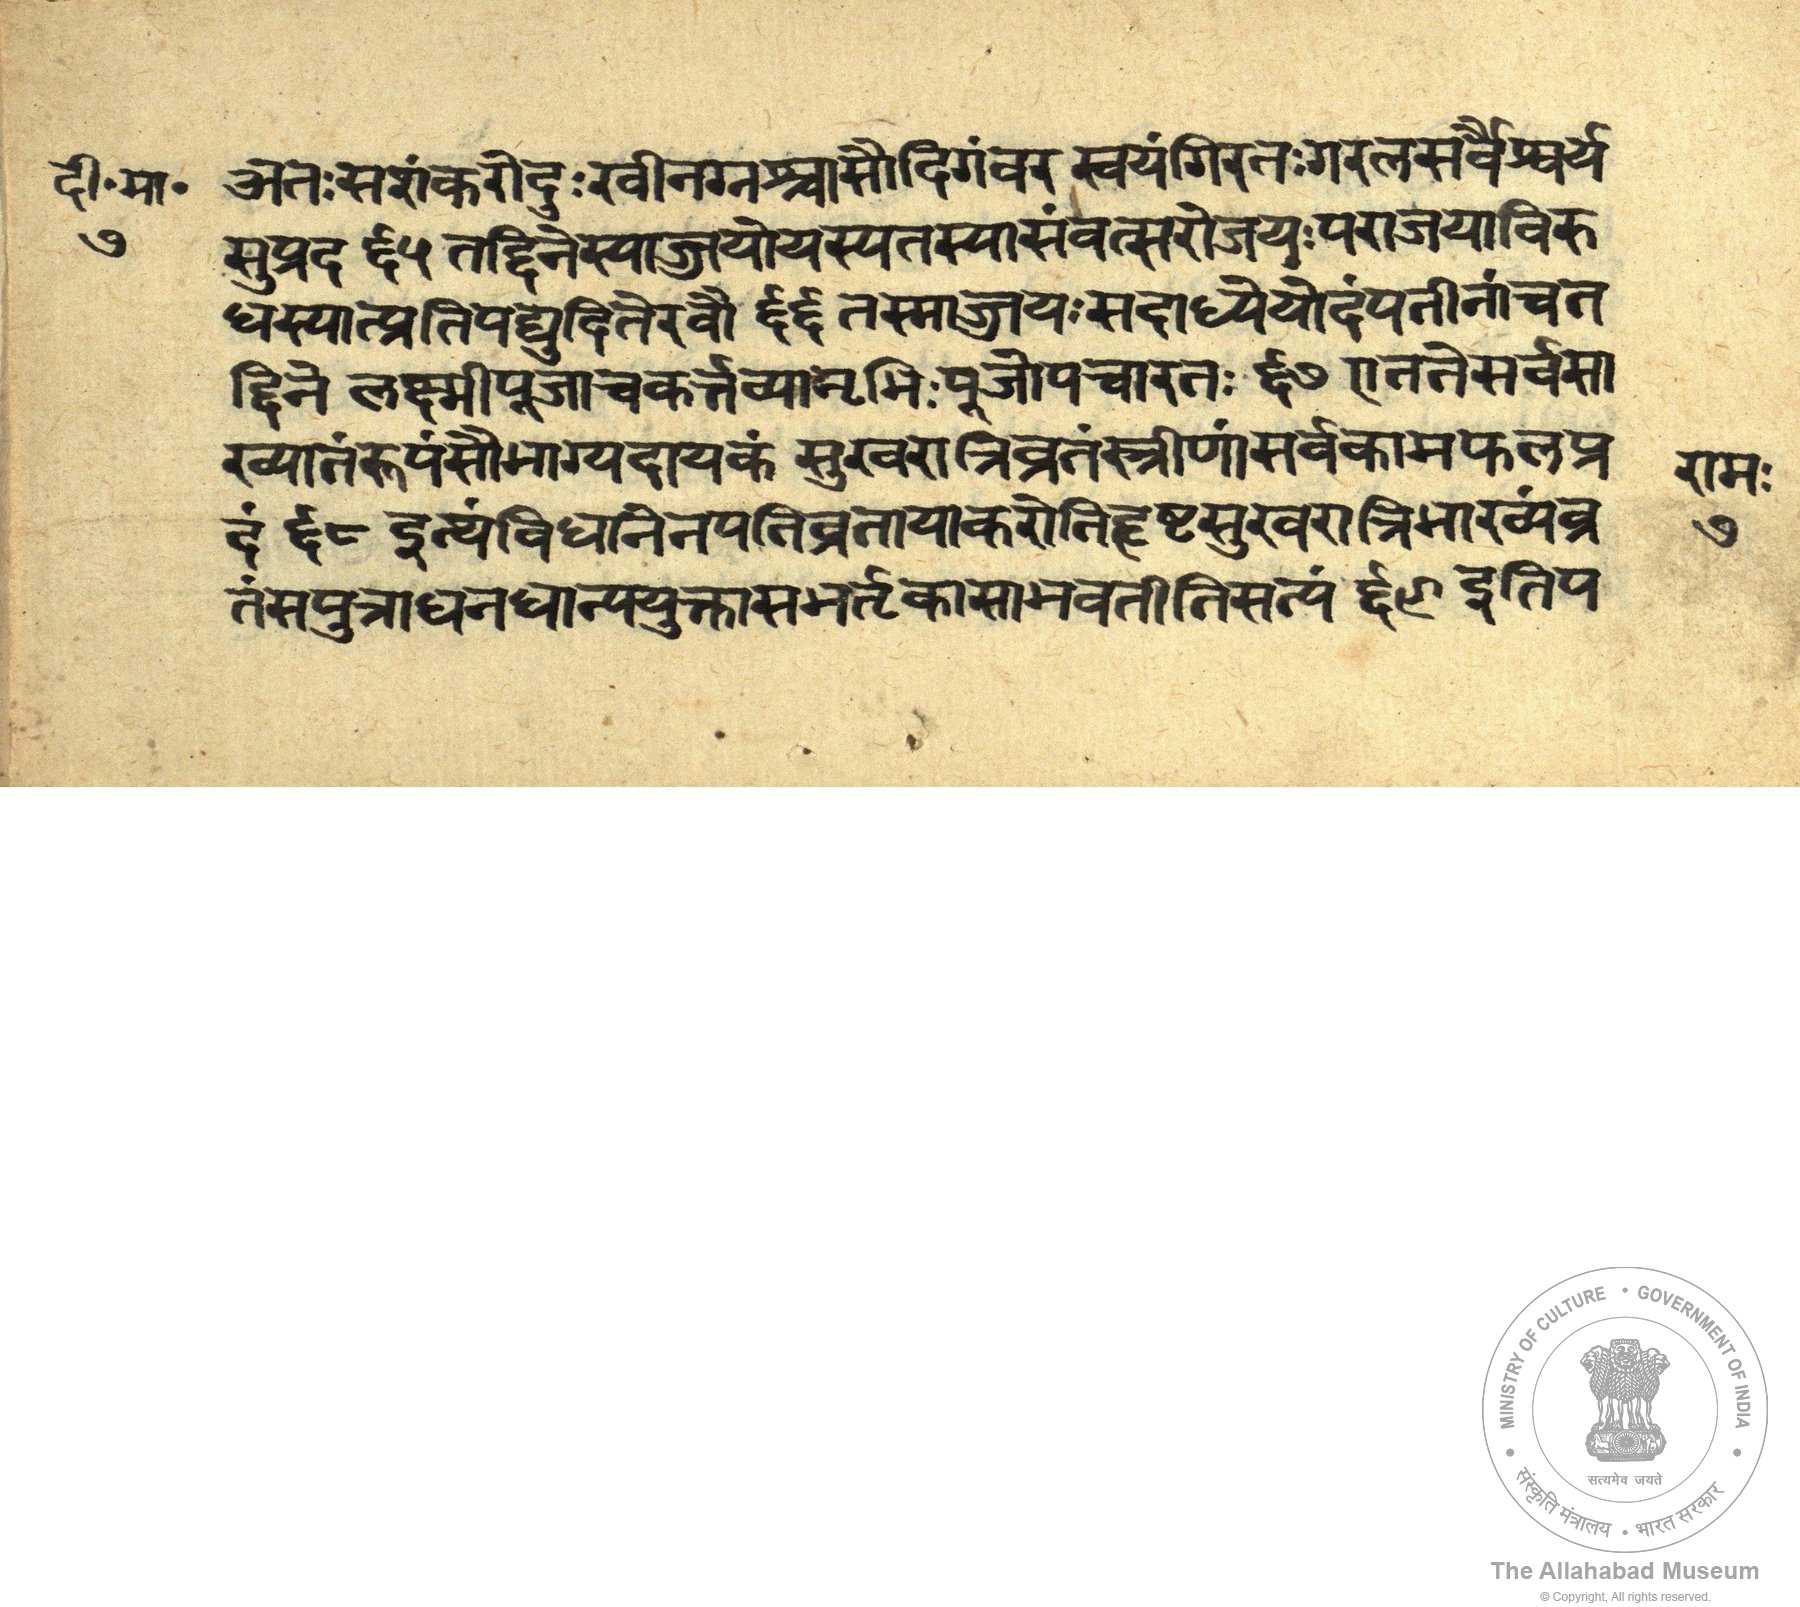 दी॰मा॰
७
अतःसशंकरोदुःखीनग्नश्चासौदिगंवर स्वयंगिरतःगरलसर्वैश्वर्य
सुप्रद ६५ तद्दिनेस्याज्जयोयस्यतस्यासंवत्सरोजयःपराजयाविरु
धस्यात्प्रतिपद्युदितेरवौ ६६ तस्माज्जयःसदाध्येयोदंपतीनांचत
द्दिने लक्ष्मीपूजाचकर्त्तव्यानृभिःपूजोपचारतः ६७ एततेसर्वसा
ख्यातंरूपंसौभाग्यदायकं सुखरात्रिव्रतंस्त्रीणांसर्वकामफलप्र
दं ६८ इत्यंविधानेनपतिव्रतायाकरोतिहृष्टसुखरात्रिभाख्यंव्र
तंसपुत्राधनधान्ययुक्तासभर्तृकासाभवतीतिसत्यं ६९ इतिप
रामः
७
MINISTRY OF CULTURE • GOVERNMENT OF INDIA
सत्यमेव जयते
संस्कृति मंत्रालय • भारत सरकार
The Allahabad Museum
© Copyright, All rights reserved.